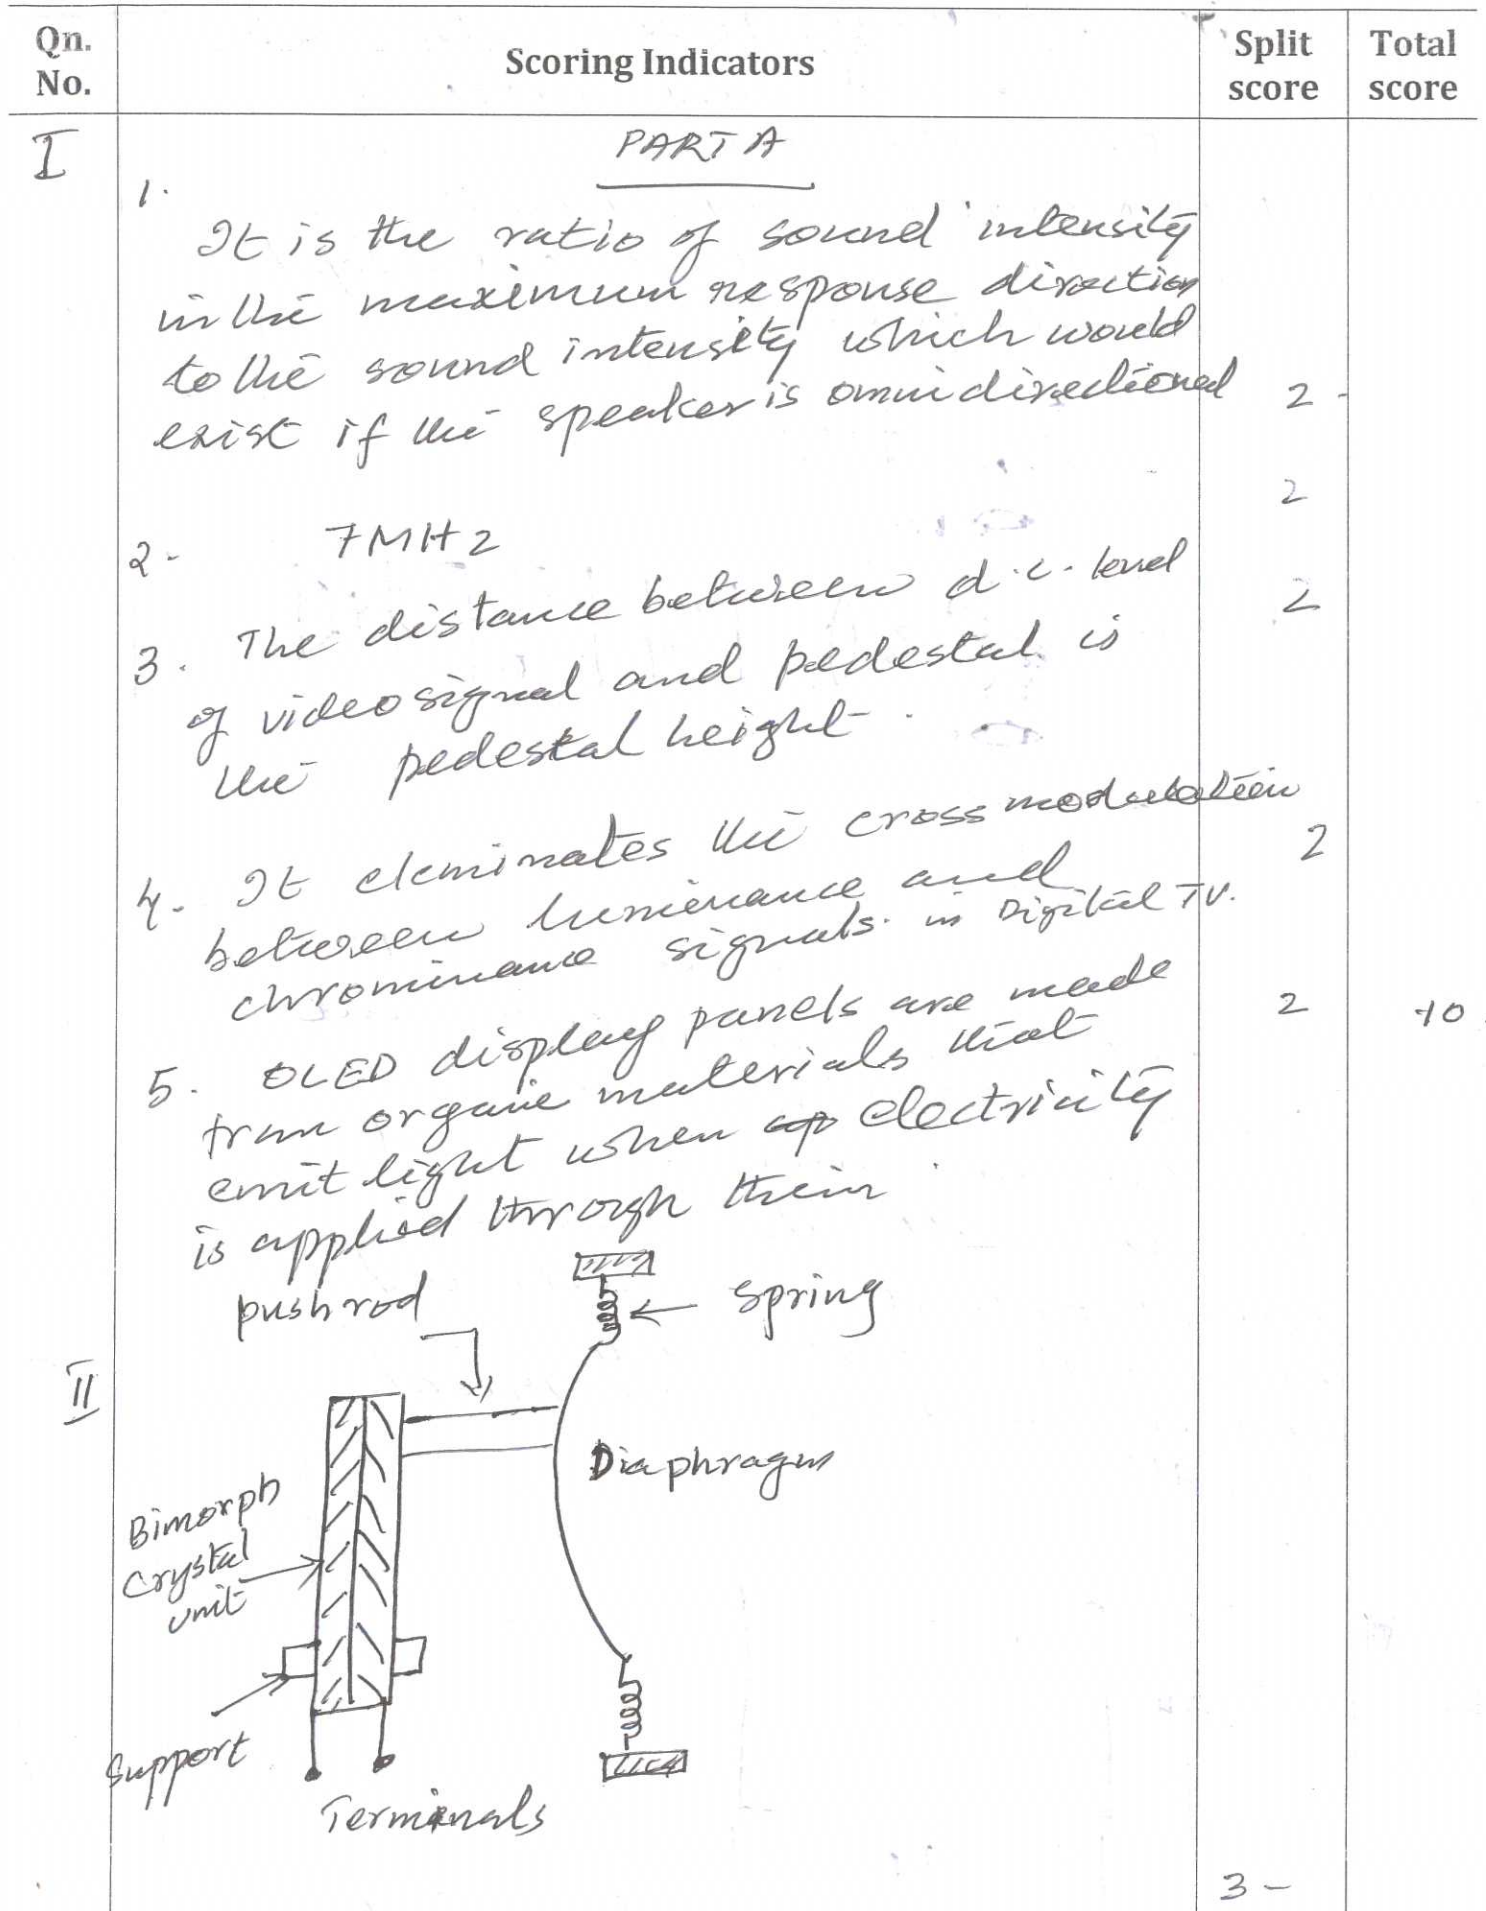 Qn. No.
Scoring Indicators
Split score
Total score
I
PART A
1.
It is the ratio of sound intensity
in the maximum response direction
to the sound intensity which would
exist if the speaker is omnidirectional
2 -
2
2 - 7MHz
3. The distance between d.c. level
2
of video signal and pedestal is
the pedestal height.
4. It eleminates the cross modulation
2
between luminance and
chrominance signals. in Digital TV.
5. OLED display panels are made
2
10
from organic materials that
emit light when electricity
is applied through them
push rod
Spring
II
Diaphragm
Bimorph
Crystal
unit
Support
Terminals
3 -